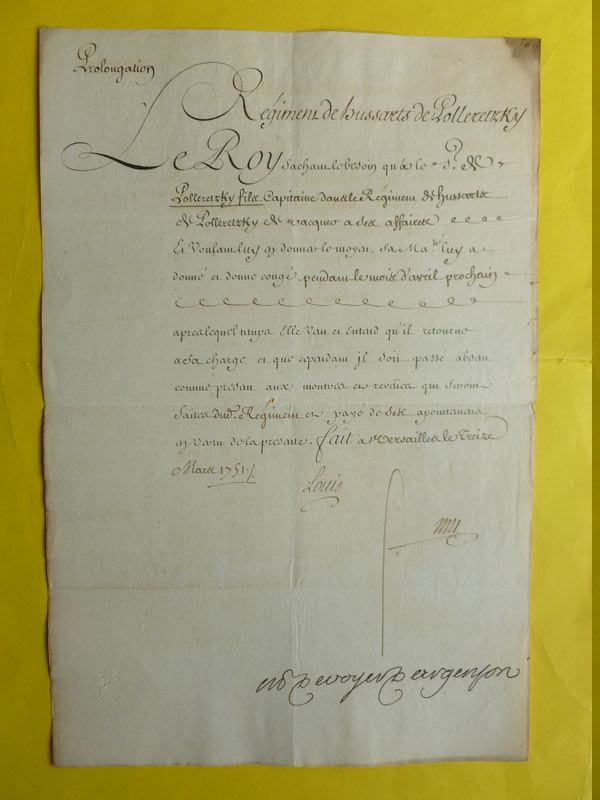 Prolongation
Regiment de hussarts de Polleretzky
Le Roy Sachant le besoin qu'a le S.r de
Polleretzky fils Capitaine dans le Régiment de hussarts
de Polleretzky de vacquer a ses affaires
Et Voulant luy en donner le moyen, Sa Ma.té luy a
donné et donne congé pendant le mois d'avril prochain
apres lequel temps Elle Veut et Entend qu'il retourne
a sa charge et que cependant il soit passé absent
comme present aux montres et reveües qui seront
faites dud. Regiment et payé de ses apointemens
en vertu de la presente. fait à Versailles le Treize
Mars 1751./.
Louis
M de voyer d'argenson